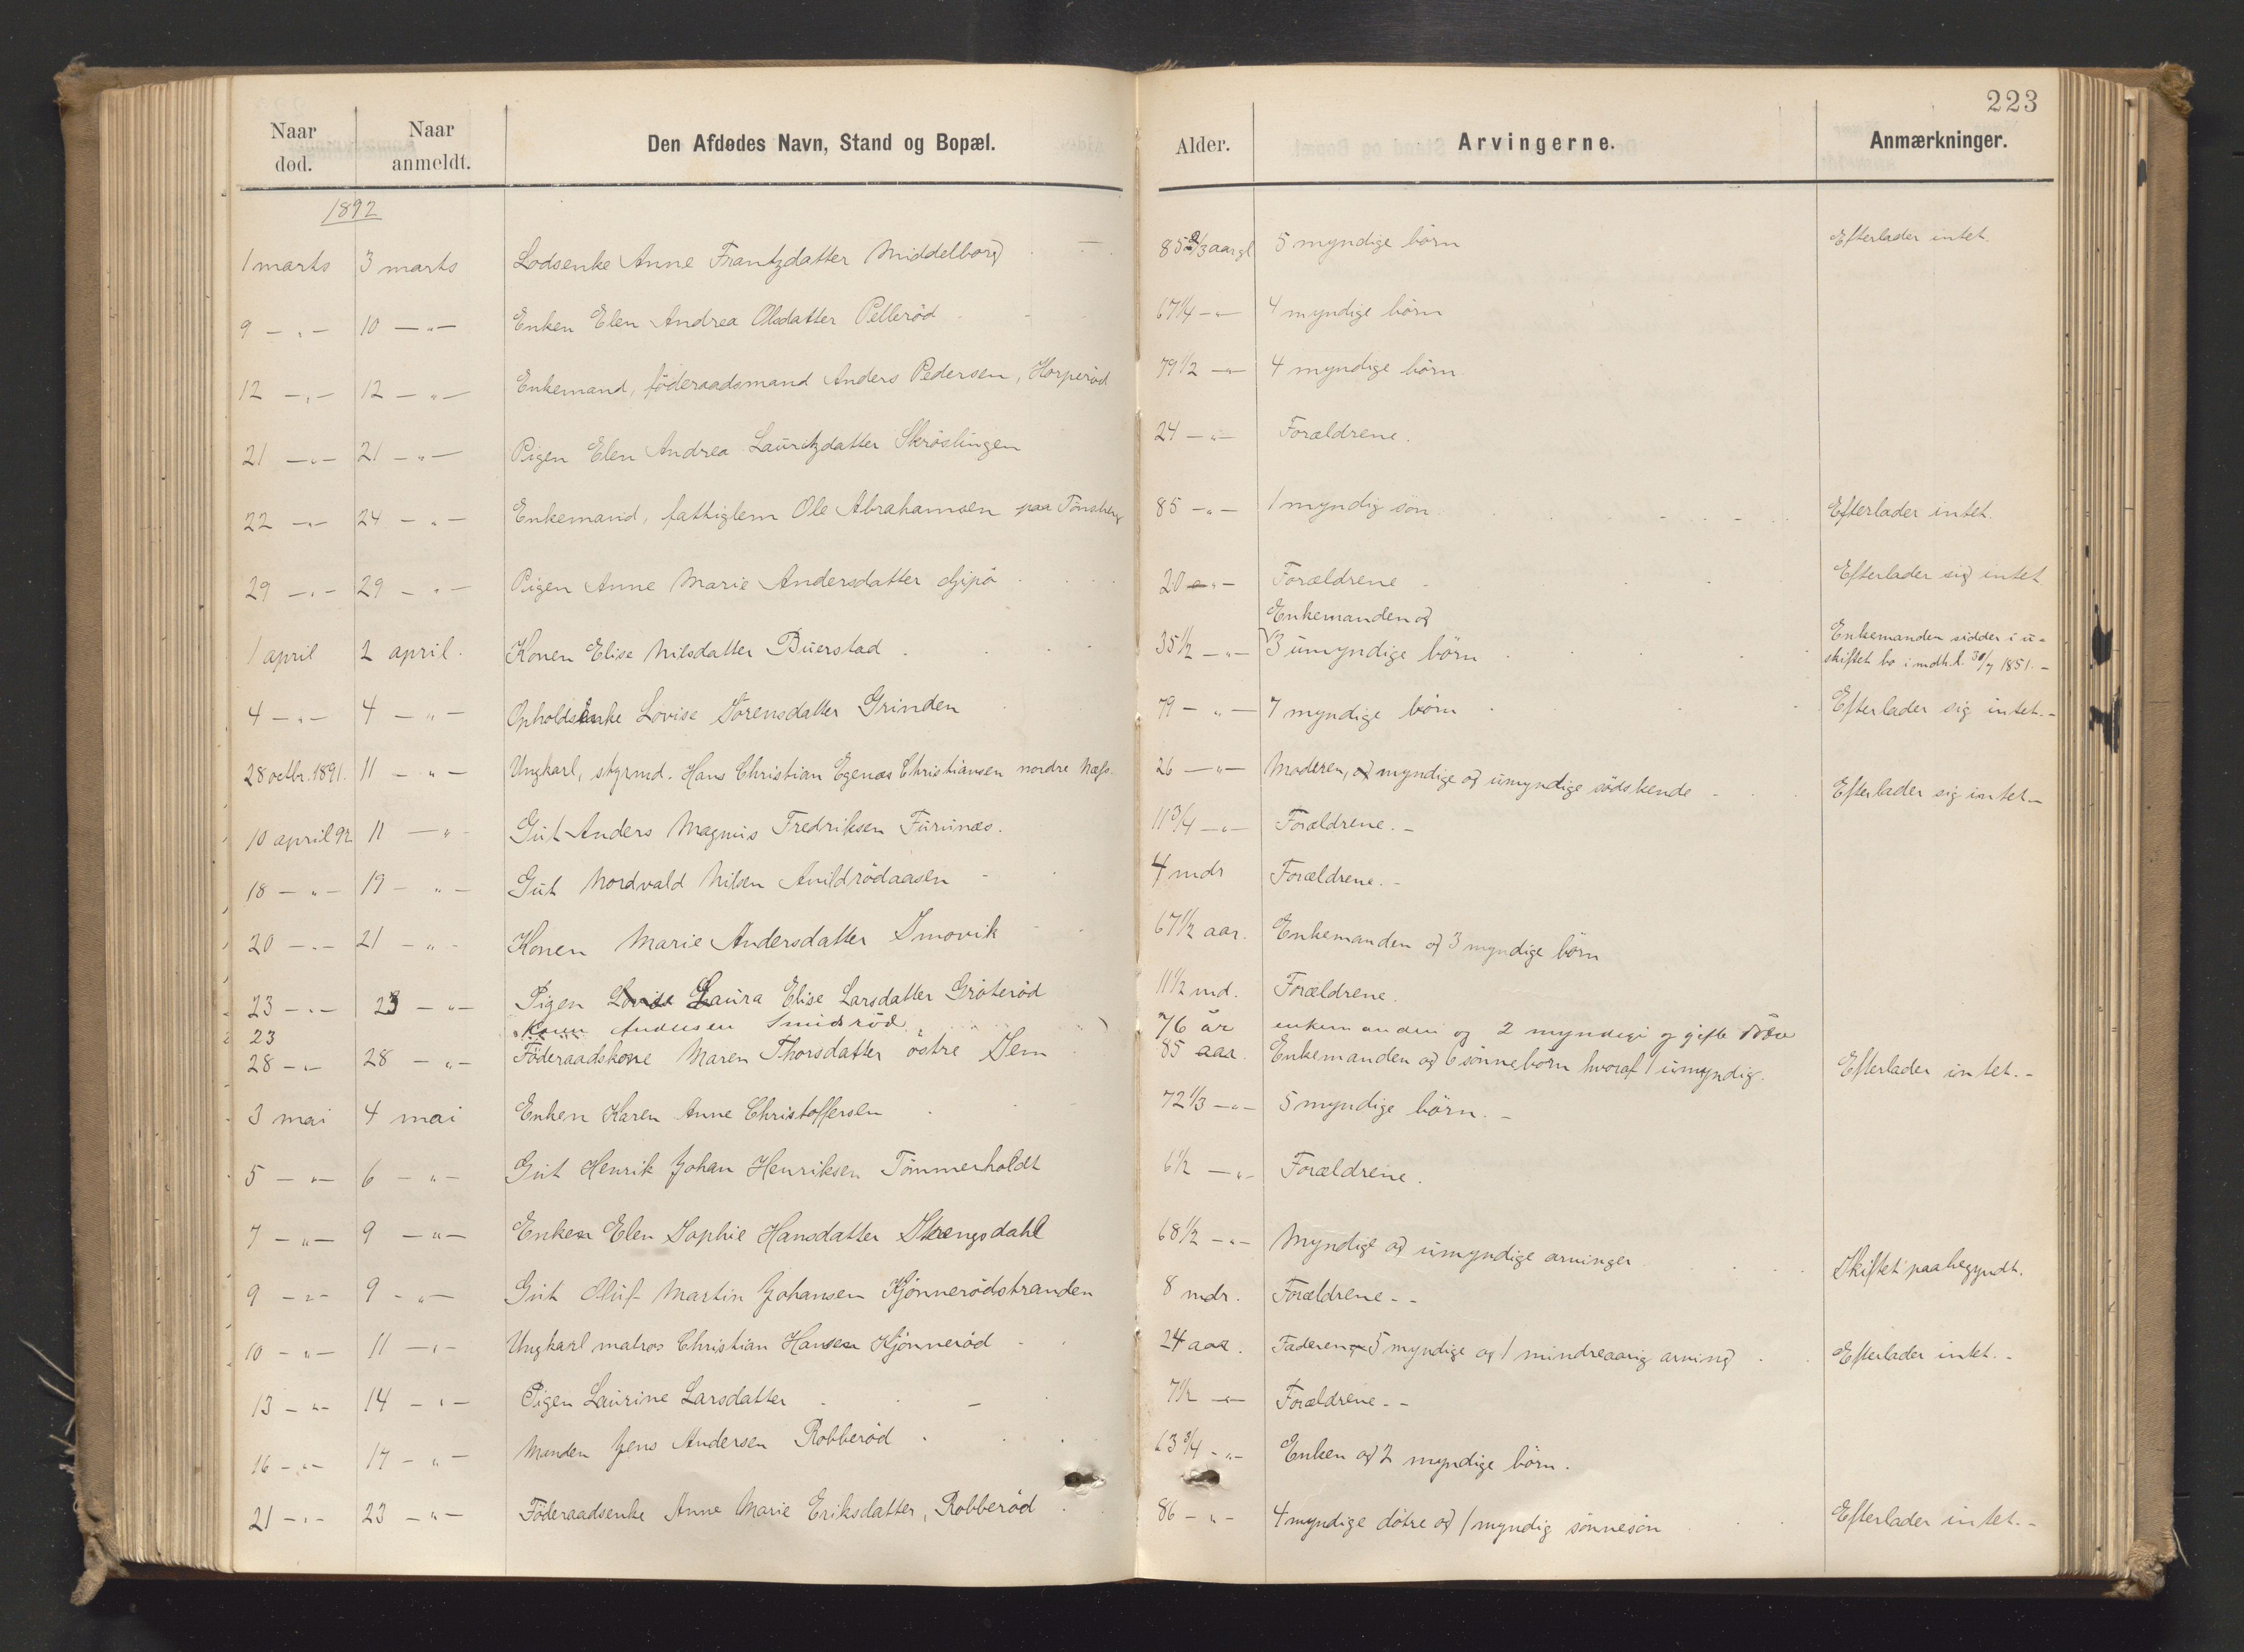 223
Naar død. Naar anmeldt. Den Afdødes Navn, Stand og Bopæl. Alder. Arvingerne. Anmærkninger.
1892
1 marts 3 marts Lodsenke Anne Frantzdatter Middelborg 85 2/3 aar gl 5 myndige börn Efterlader intet.
9 — " — 10 — " — Enken Elen Andrea Olsdatter Pelleröd 67 1/4 — " — 4 myndige börn
12 — " — 12 — " — Enkemand, föderaadsmand Anders Pedersen, Horperöd 79 1/2 — " — 4 myndige börn
21 — " — 21 — " — Pigen Elen Andrea Lauritzdatter Skröslingen 24 — " — Forældrene.
22 — " — 24 — " — Enkemand, fattiglem Ole Abrahamsen paa Tönsberg 85 — " — 1 myndig sön Efterlader intet.
29 — " — 29 — " — Pigen Anne Marie Andersdatter Gipö 20 — " — Forældrene Efterlader sig intet
1 april 2 april. Konen Elise Nilsdatter Buerstad 35 1/2 — " — Enkemanden og 3 umyndige börn Enkemanden sidder i u-
skiftet bo i mdh.t. 30/7 1851. —
4 — " — 4 — " — Opholdsenke Lovise Sörensdatter Grinden 79 — " — 7 myndige börn Efterlader sig intet. —
28 octbr. 1891. 11 — " — Ungkarl, styrmd. Hans Christian Egenæs Christiansen nordre Næss. 26 — " — Moderen, og myndige og umyndige södskende Efterlader sig intet —
10 april 92 11 — " — Gut Anders Magnus Fredriksen Furunæs. 11 3/4 — " — Forældrene. —
18 — " — 19 — " — Gut Nordvald Nilsen Avildrödaasen 4 mdr Forældrene. —
20 — " — 21 — " — Konen Marie Andersdatter Smovik 67 1/2 aar. Enkemanden og 3 myndige börn
23 — " — 23 — " — Pigen Lovise Laura Elise Larsdatter Gröteröd 11 1/2 md. Forældrene.
23 Konen Andersen Smidsröd 76 år enkemanden og 2 myndige og gifte
28 — " — 28 — " — Föderaadskone Maren Thorsdatter östre Sem 85 aar. Enkemanden og 6 sönnebörn hvoraf 1 umyndig. Efterlader intet. —
3 mai 4 mai Enken Karen Anne Christoffersen 72 1/3 — " — 5 myndige börn. —
5 — " — 6 — " — Gut Henrik Johan Henriksen Tömmerholdt 6 1/2 — " — Forældrene.
7 — " — 9 — " — Enken Elen Sophie Hansdatter Strengsdahl 68 1/2 — " — Myndige og umyndige arvinger Skiftet paabegyndt.
9 — " — 9 — " — Gut Oluf Martin Johansen Kjönnerödstranden 8 mdr. Forældrene. —
10 — " — 11 — " — Ungkarl matros Christian Hansen Kjönneröd 24 aar. Faderen, 5 myndige og 1 mindreaarig arving Efterlader intet. —
13 — " — 14 — " — Pigen Laurine Larsdatter 7 1/2 — " — Forældrene. —
16 — " — 17 — " — Manden Jens Andersen Robberöd 63 3/4 — " — Enken og 2 myndige börn.
21 — " — 23 — " — Föderaadsenke Anne Marie Eriksdatter, Robberöd 86 — " — 4 myndige dötre og 1 myndig sönnesön Efterlader intet. —